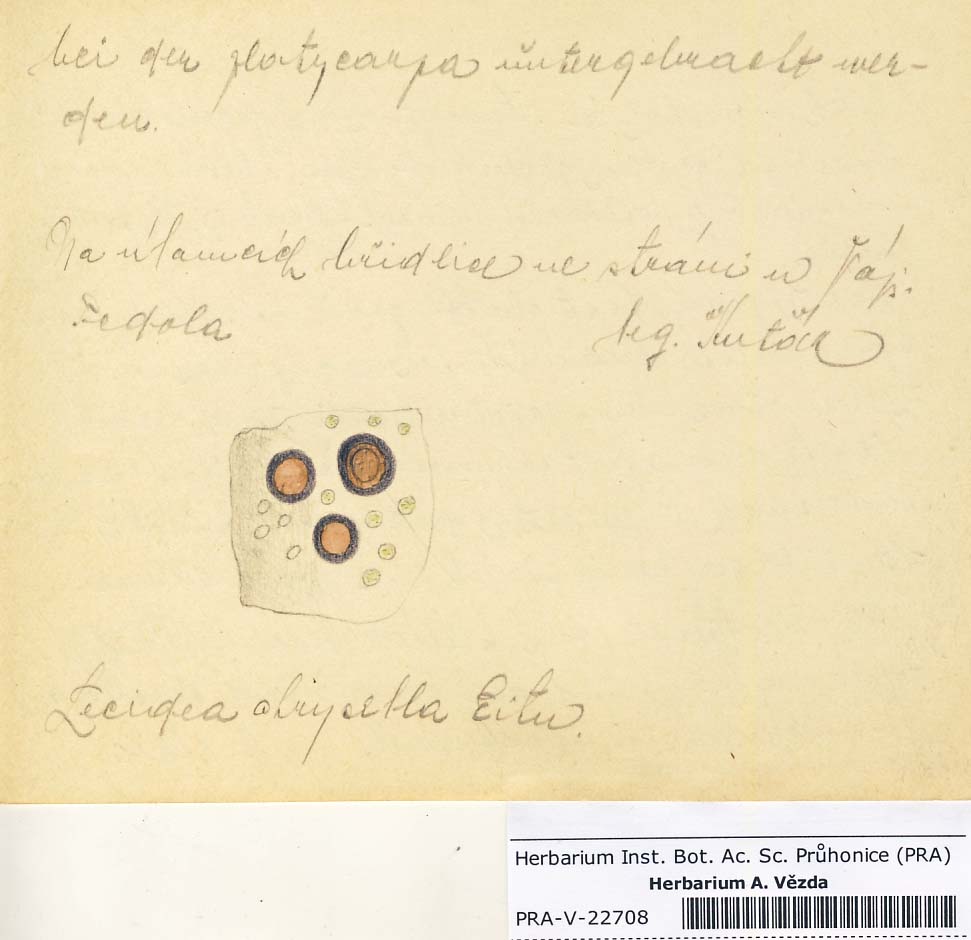 bei der platycarpa untergebracht wer-
den.
Na úlamcích břidlice ve stráni u Ráj.
Fedola
leg. Kuťák
Lecidea chrysella Eitn.
Herbarium Inst. Bot. Ac. Sc. Průhonice (PRA)
Herbarium A. Vězda
PRA-V-22708